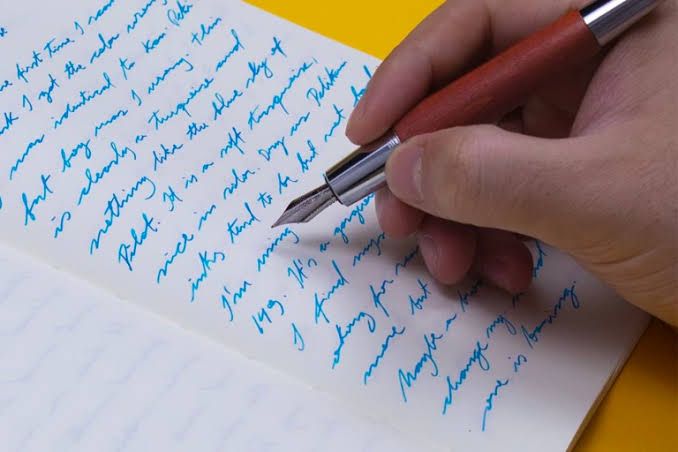 first time I saw
I got the color wrong
was identical to Kon Peki
but boy was I wrong. This
is clearly a turquoise and
nothing like the blue sky of
Pilot. It is a soft turquoise,
nice in color. Dry as Pelikan
inks tend to be but not bad
I'm using
149. It's a
I find my
for
more but
Maybe a
change my
one is boring.